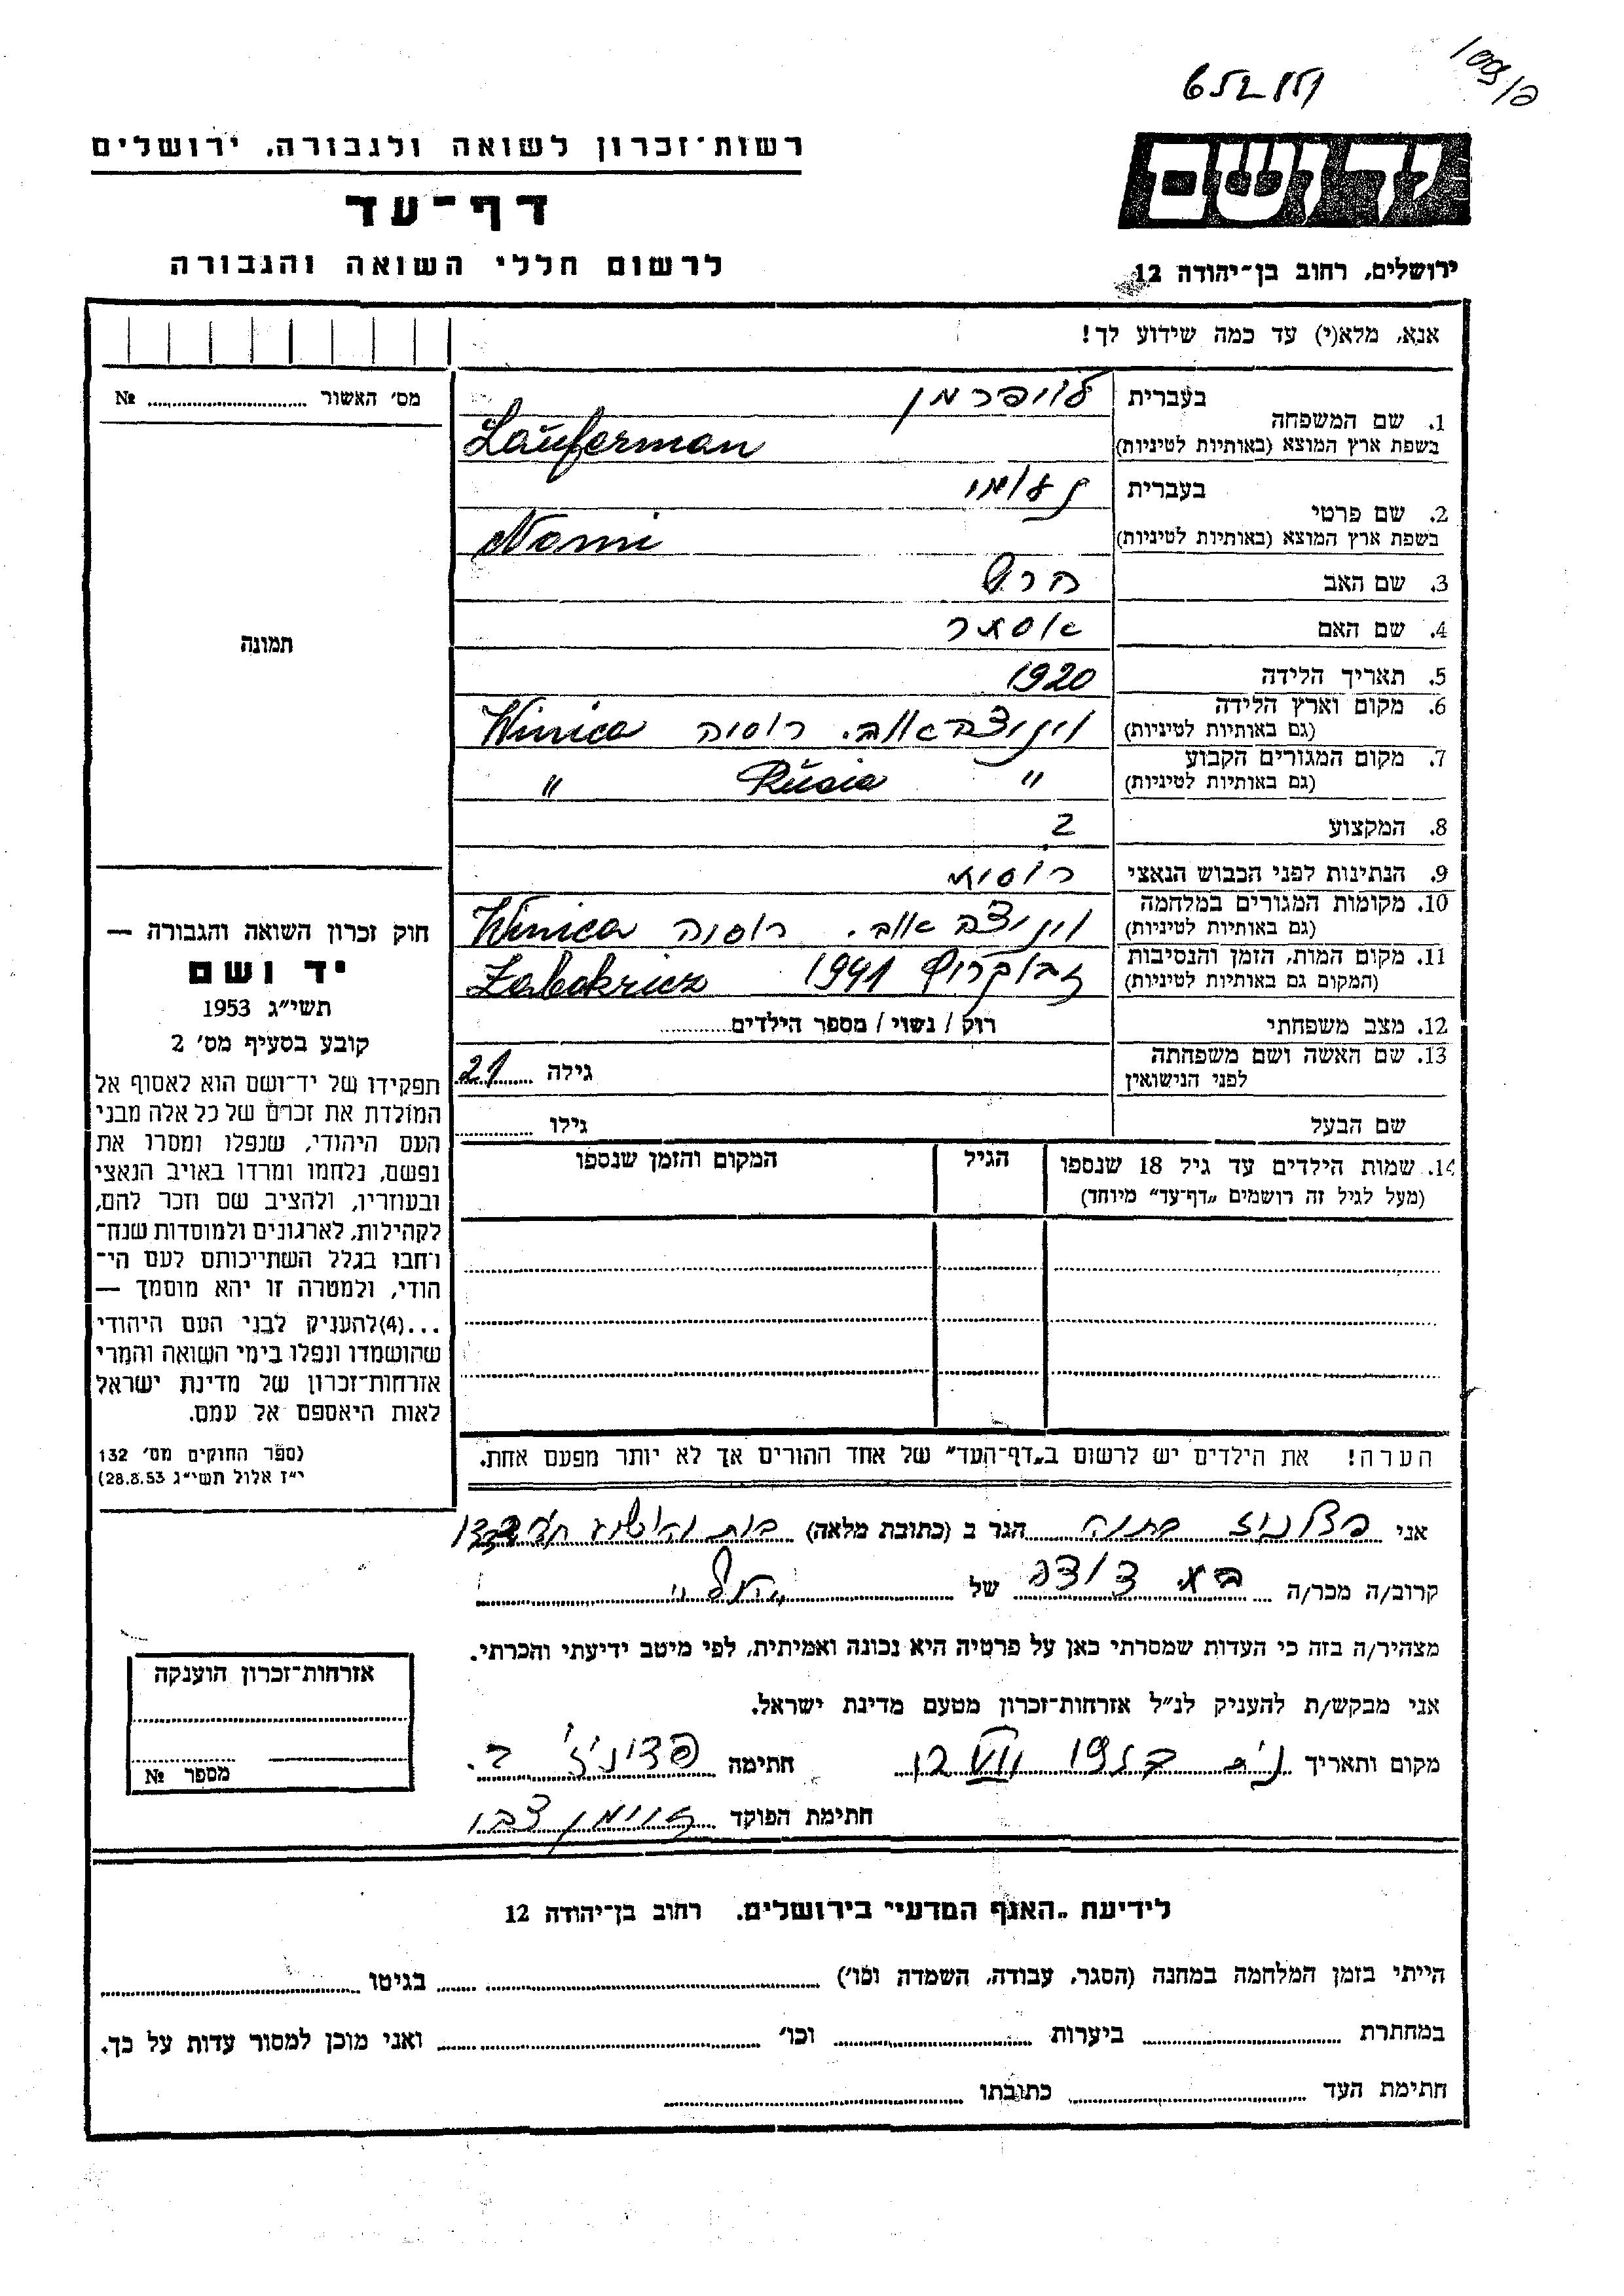 652 רח
רשות־זכרון לשואה ולגבורה, ירושלים
דף־עד
לרשום חללי השואה והגבורה
יד ושם
ירושלים, רחוב בן־יהודה 12
אנא, מלא(י) עד כמה שידוע לך!
מס׳ האשור ........ №
תמונה
1. שם המשפחה בעברית לויפרמן
בשפת ארץ המוצא (באותיות לטיניות) Lauferman
2. שם פרטי בעברית נעומי
בשפת ארץ המוצא (באותיות לטיניות) Nomi
3. שם האב הרש
4. שם האם אסתר
5. תאריך הלידה 1920
6. מקום וארץ הלידה (גם באותיות לטיניות) ויניצה אוב. רוסיה Winica
7. מקום המגורים הקבוע (גם באותיות לטיניות) " Rusia "
8. המקצוע
9. הנתינות לפני הכבוש הנאצי רוסית
10. מקומות המגורים במלחמה (גם באותיות לטיניות) ויניצה אוב. רוסיה Winica
11. מקום המות, הזמן והנסיבות (המקום גם באותיות לטיניות) 1941 Zabokricz
12. מצב משפחתי רוק / נשוי / מספר הילדים........
13. שם האשה ושם משפחתה לפני הנישואין גילה 21
שם הבעל גילו ........
14. שמות הילדים עד גיל 18 שנספו הגיל המקום והזמן שנספו
(מעל לגיל זה רושמים „דף־עד” מיוחד)
הערה! את הילדים יש לרשום ב„דף־העד” של אחד ההורים אך לא יותר מפעם אחת.
חוק זכרון השואה והגבורה —
יד ושם
תשי״ג 1953
קובע בסעיף מס׳ 2
תפקידו של יד־ושם הוא לאסוף אל
המולדת את זכרם של כל אלה מבני
העם היהודי, שנפלו ומסרו את
נפשם, נלחמו ומרדו באויב הנאצי
ובעוזריו, ולהציב שם וזכר להם,
לקהילות, לארגונים ולמוסדות שנח־
רבו בגלל השתייכותם לעם הי־
הודי, ולמטרה זו יהא מוסמך —
...(4)להעניק לבני העם היהודי
שהושמדו ונפלו בימי השואה והמרי
אזרחות־זכרון של מדינת ישראל
לאות היאספם אל עמם.
(ספר החוקים מס׳ 132
י״ז אלול תשי״ג 28.8.53)
אני הגר ב (כתובת מלאה)
קרוב/ה מכר/ה בת דודה של
מצהיר/ה בזה כי העדות שמסרתי כאן על פרטיה היא נכונה ואמיתית, לפי מיטב ידיעתי והכרתי.
אני מבקש/ת להעניק לנ״ל אזרחות־זכרון מטעם מדינת ישראל.
מקום ותאריך חתימה
חתימת הפוקד
אזרחות־זכרון הוענקה
מספר №
לידיעת „האגף המדעי” בירושלים, רחוב בן־יהודה 12
הייתי בזמן המלחמה במחנה (הסגר, עבודה, השמדה וכו׳) ........ בגיטו ........
במחתרת ........ ביערות ........ וכו׳ ........ ואני מוכן למסור עדות על כך.
חתימת העד ........ כתובתו ........